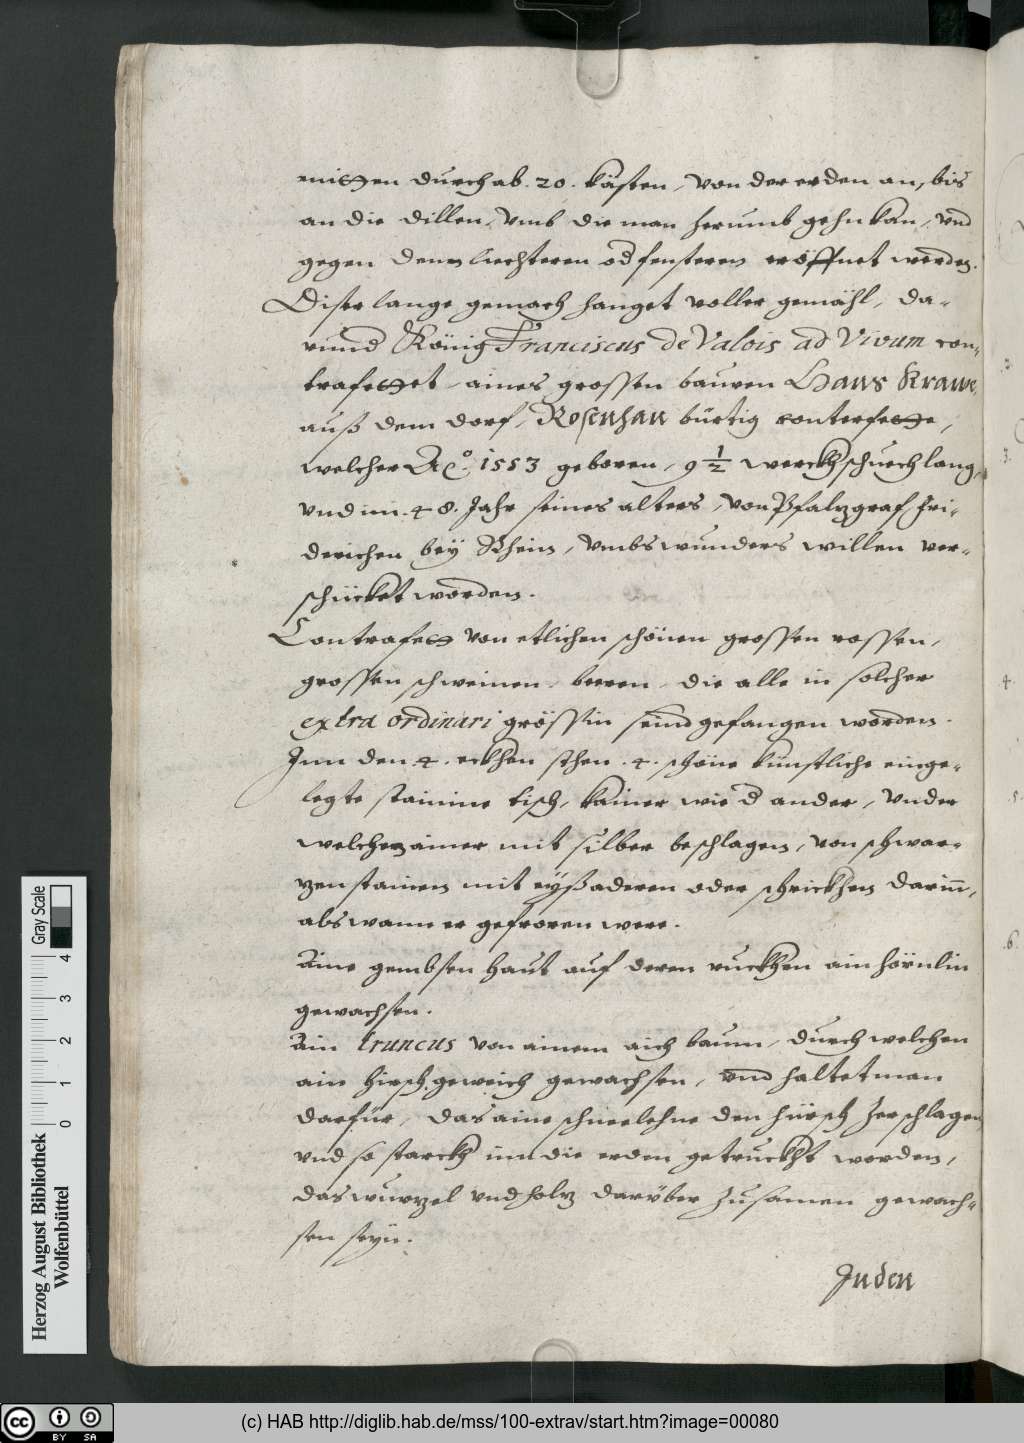 mitten durch ab. 20. kästen, von der erden an, bis
an die dillen, vmb die man herumb gehn kan, vnd
gegen denn liechteren od fensteren eröffnet werden.
Diser lange gemach hanget voller gemähl, da-
rund König Franciscus de Valois ad Vivum con-
trafettet, aines grossen bauren Hans Kraus
auß dem dorf, Rosenhan bürtig conterfette,
welcher Aō. 1553 geboren, 9 1/2 werckhschuech lang,
vnd im. 48. Jahr seines alters, von Pfalzgraf Fri-
derichen bey Rhein, vmbs wunders willen ver-
schücket worden.
Contrafett von etlichen schönen grossen rossen,
grossen schweinen, beeren, die alle in solcher
extra ordinari grössin seind gefangen worden.
Inn den. 4. eckhen sthen. 4. schöne künstliche einge-
legte stainine tisch, kainer wie d ander, vnder
welchen ainer mit silber beschlagen, von schwar-
zen stainen mit eyßaderen oder schrickhen darinn,
abs wann er gefroren were.
Aine gembsen haut auf deren ruckhen ain hörnlin
gewachsen.
Ain truncus von ainem aich baum, durch welchen
ain hirsch geweich gewachsen, vnd haltet man
darfür, das aine schneelehne den hürsch zerschlagen
vnd so starckh inn die erden getruckht worden,
das wurzel vnd holz darüber zusamen gewach-
sen seyn.
Inden
Herzog August Bibliothek
Wolfenbüttel
0 1 2 3 4
Gray Scale
cc BY SA
(c) HAB http://diglib.hab.de/mss/100-extrav/start.htm?image=00080